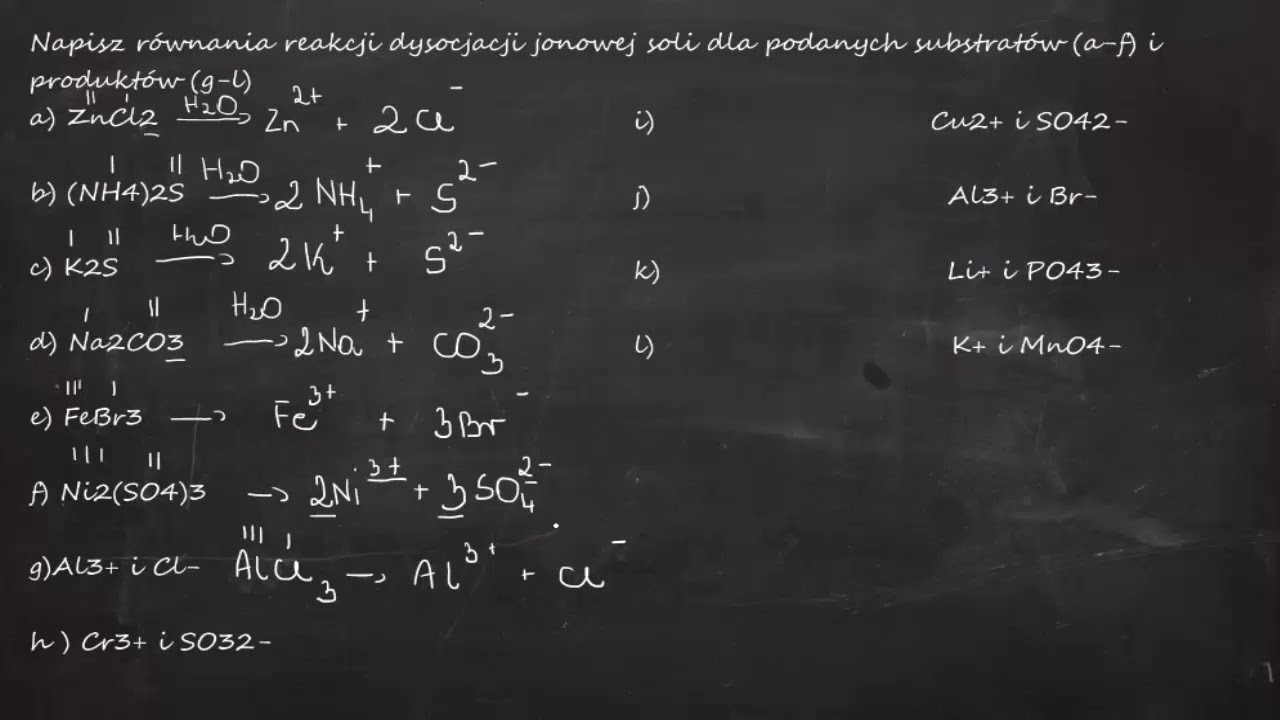 Napisz równania reakcji dysocjacji jonowej soli dla podanych substratów (a-f) i
produktów (g-l)
a) ZnCl2 H₂O → Zn²⁺ + 2Cl⁻
II I
b) (NH4)2S H₂O → 2NH₄⁺ + S²⁻
I II
c) K2S H₂O → 2K⁺ + S²⁻
I II
d) Na2CO3 H₂O → 2Na⁺ + CO₃²⁻
I II
e) FeBr3 → Fe³⁺ + 3Br⁻
III I
f) Ni2(SO4)3 → 2Ni³⁺ + 3SO₄²⁻
III II
g)Al3+ i Cl- AlCl₃ → Al³⁺ + Cl⁻
III I
h) Cr3+ i SO32-
i) Cu2+ i SO42-
j) Al3+ i Br-
k) Li+ i PO43-
l) K+ i MnO4-